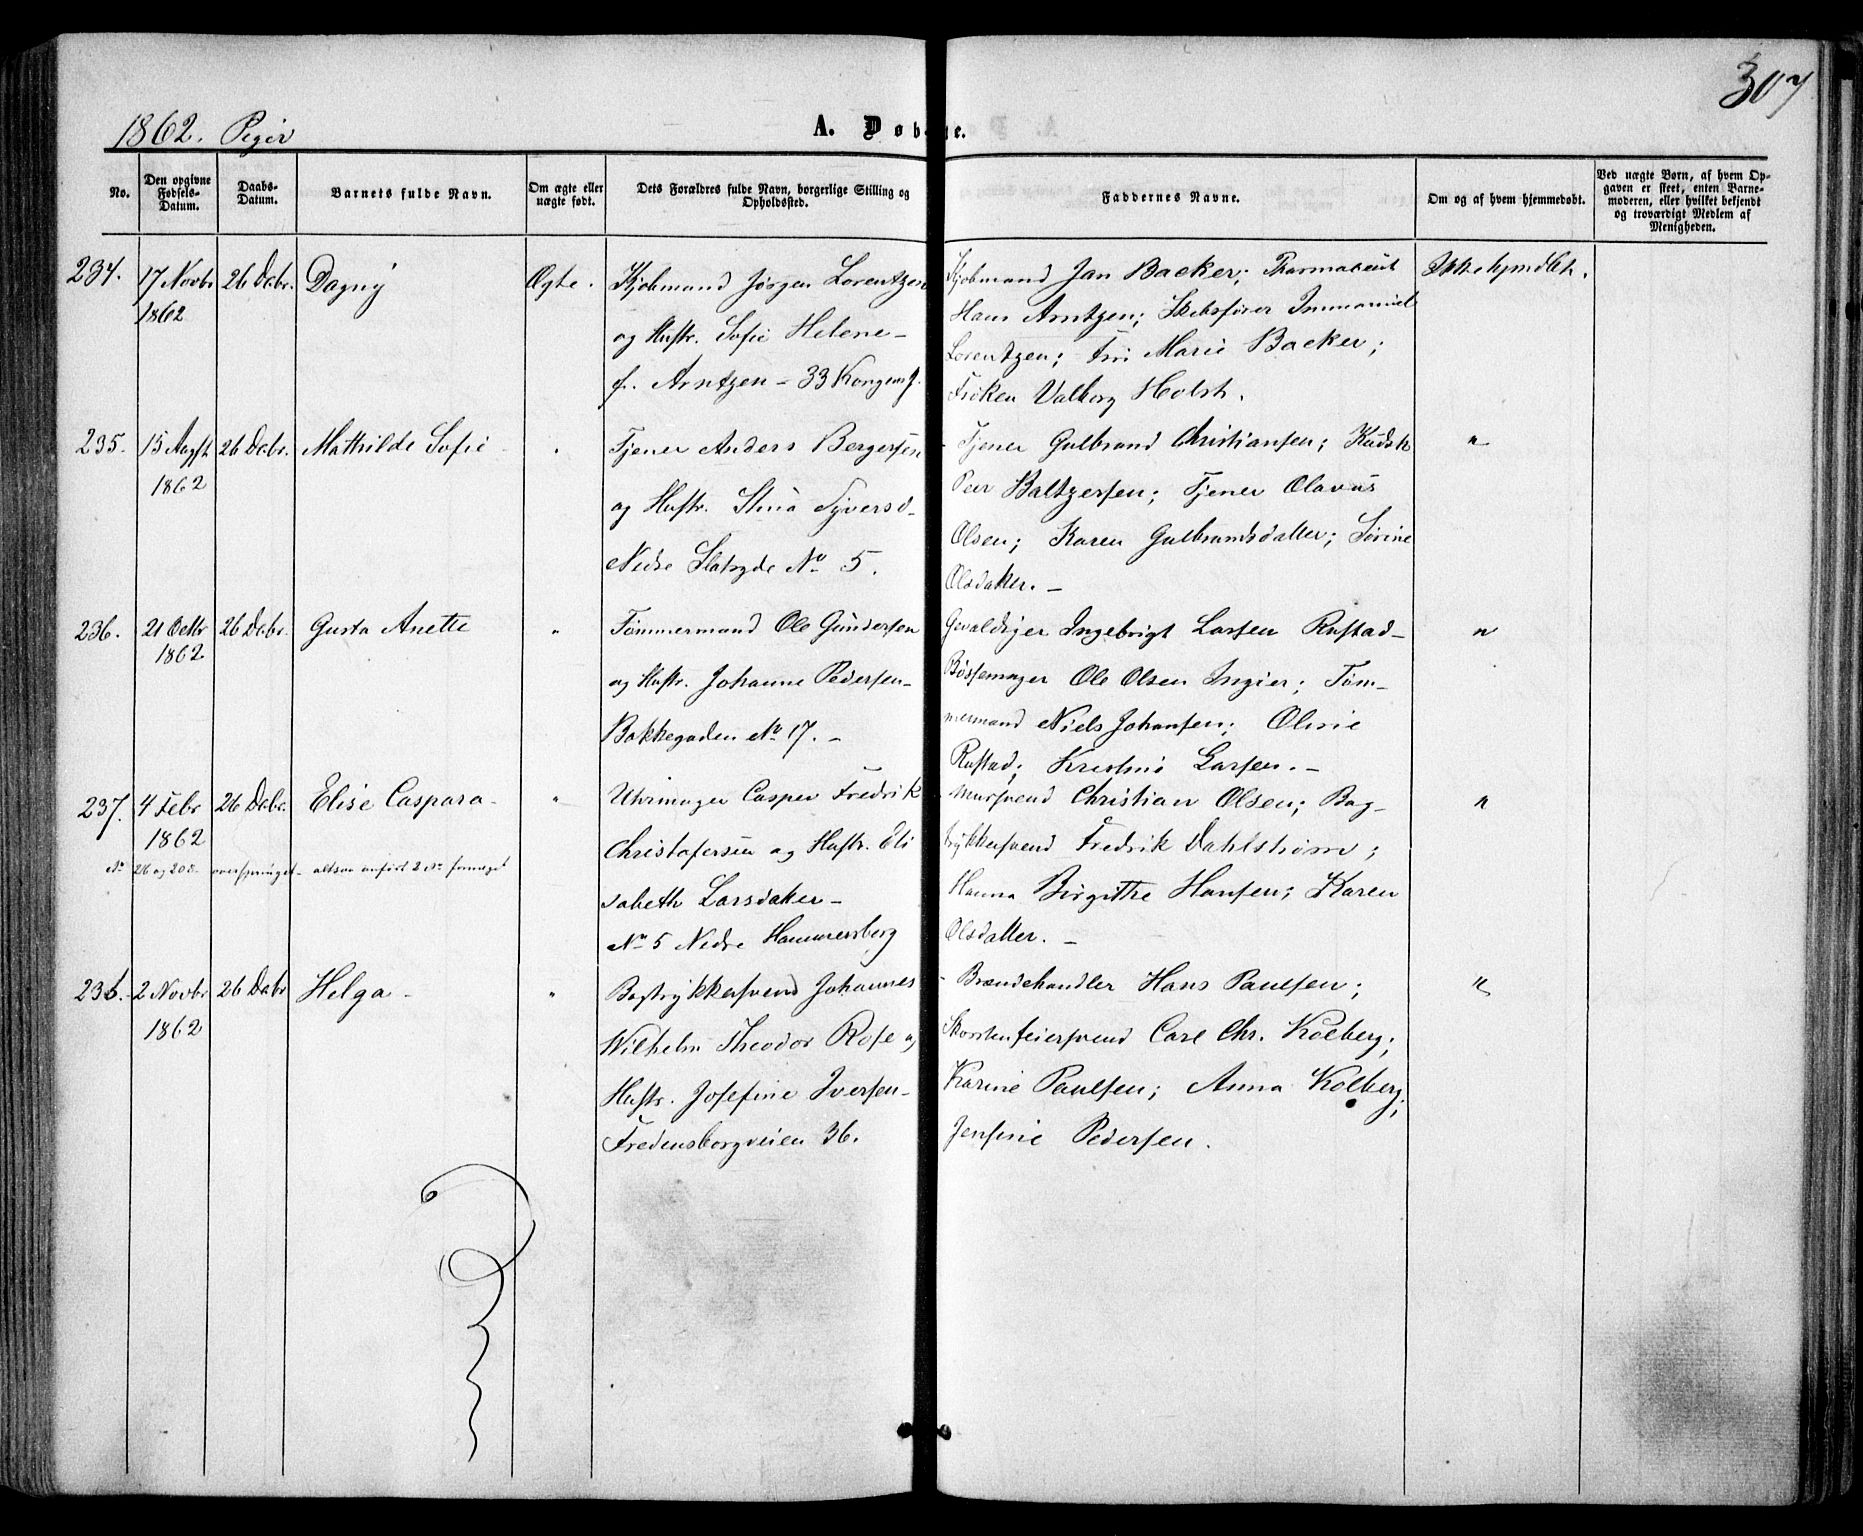 307
1862. Piger
A. Døbte.
No.
Den opgivne Fødsels-Datum.
Daabs-Datum.
Barnets fulde Navn.
Om ægte eller uægte født.
Dets Forældres fulde Navn, borgerlige Stilling og Opholdssted.
Faddernes Navne.
Om og af hvem hjemmedøbt.
Ved uægte Børn, af hvem Opgaven er skeet, enten Barnemoderen, eller hvilket bekjendt og troværdigt Medlem af Menigheden.
234. 17 Novbr 26 Decbr. Dagny Ægte. Kjøbmand Jörgen Lorentzen
1862 og Hustr. Sofie Helene –
f. Arntzen – 33 Kongensg.
Kjøbmand Jan Backer; Farmaceut
Hans Arntzen; Skibsfører Immanuel
Lorentzen; Fru Marie Backer;
Frøken Valborg Holst.
Ikke hjmdbt.
235. 15 Augst 26 Decbr. Mathilde Sofie " Tjener Anders Bergersen
1862 og Hustr. Stina Syversd –
Nedre Slotsgde No 5.
Tjener Gulbrand Christiansen; Kudsk
Peer Baltzersen; Tjener Olavus
Olsen; Karen Gulbrandsdatter; Sørine
Olsdatter. –
"
236. 21 Octbr 26 Decbr. Gusta Anette " Tømmermand Ole Gundersen
1862 og Hustr. Johanne Pedersen –
Bakkegaden No 17. –
Gevaldiger Ingebrigt Larsen Rustad –
Bøssemager Ole Olsen Ingier; Tøm-
mermand Niels Johansen; Oline
Rustad; Kristine Larsen. –
"
237. 4 Febr 26 Decbr. Elise Caspara – " Uhrmager Casper Fredrik
1862 Christofersen og Hustr. Eli
No 216 og 208 overspringet – altsaa anført 2 No formeget
sabeth Larsdatter –
No 5 Nedre Hammersborg
Mursvend Christian Olsen; Bog-
trykkersvend Fredrik Dahlstrøm;
Hanna Birgitthe Hansen; Karen
Olsdatter. –
"
236. 2 Novbr 26 Decbr Helga – " Bogtrykkersvend Johannes
1862 Wilhelm Theodor Rose og
Hustr. Josefine Iversen –
Fredensborgveien 36.
– Brændehandler Hans Paulsen;
Skorstenfeiersvend Carl Chr. Kolberg;
Karine Paulsen; Anna Kolberg;
Jensine Pedersen.
"